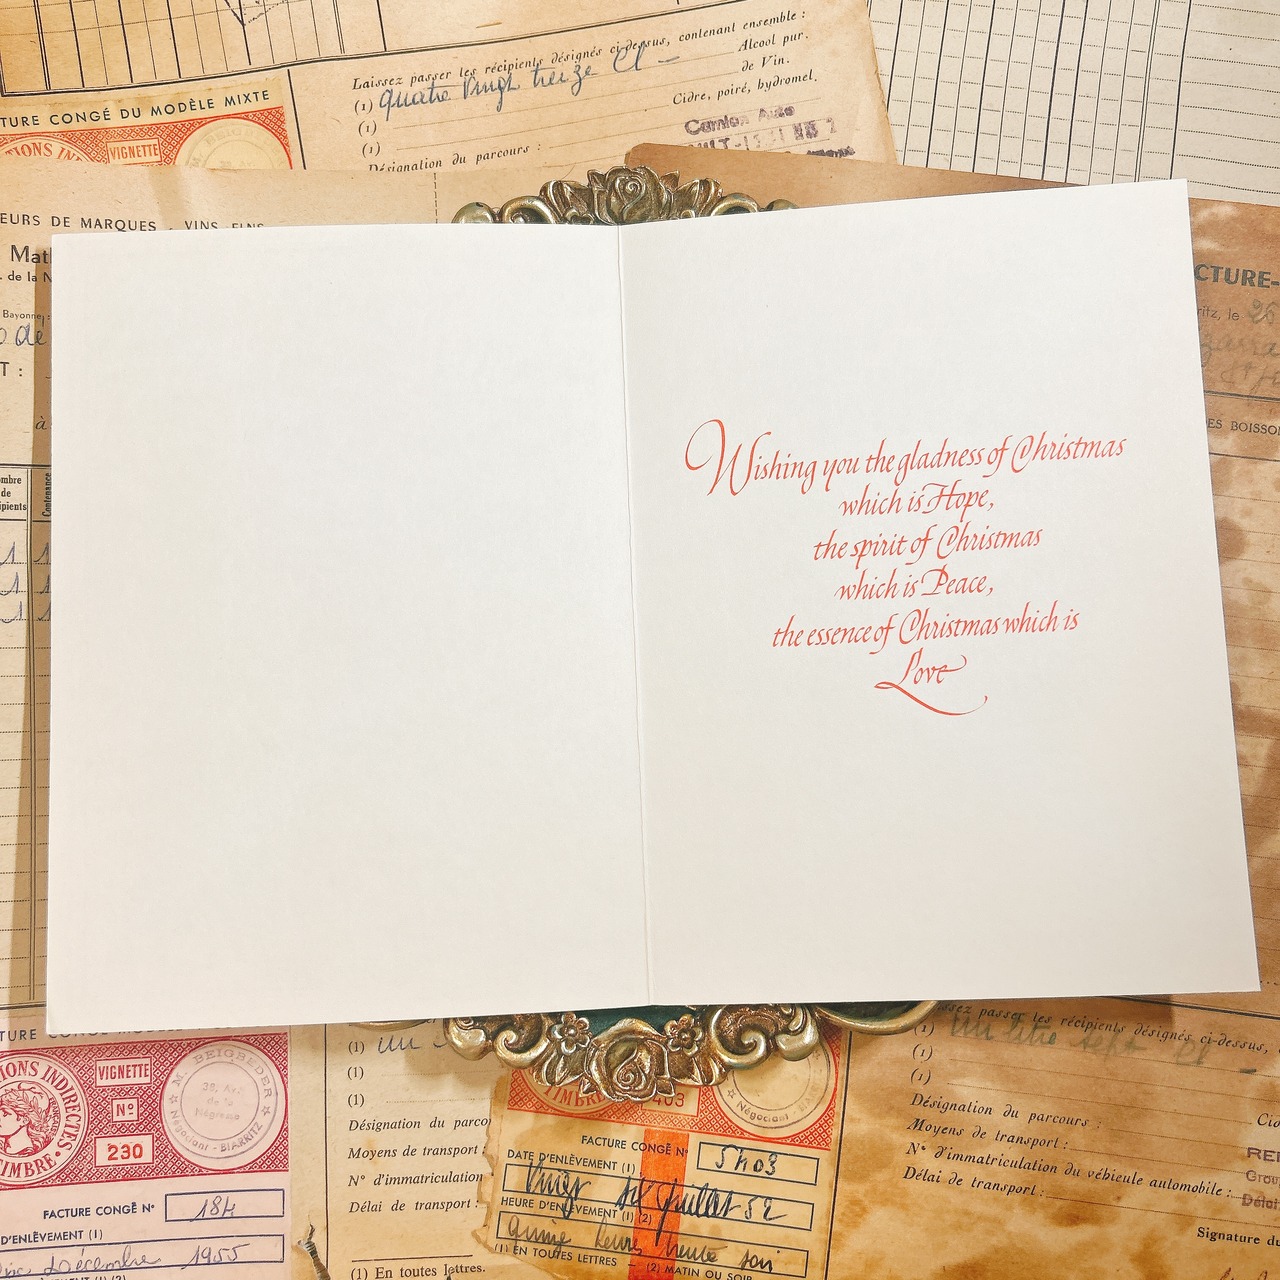 Laissez passer les récipients désignés ci-dessus, contenant ensemble :
(1) quatre vingt treize Cl —
Alcool pur.
(1)
de Vin.
(1)
Cidre, poiré, hydromel.
Désignation du parcours :
Camion Auto
TURE CONGÉ DU MODÈLE MIXTE
VIGNETTE
EURS DE MARQUES . VINS FINS
de la N
Bayonne,
T :
à
CTURE-
ritz, le 26
ES BOISSO
ombre
de
ipients
Contenance
1 1
1 1
1 1
Wishing you the gladness of Christmas
which is Hope,
the spirit of Christmas
which is Peace,
the essence of Christmas which is
Love
TIONS INDIRECTES
TIMBRE
VIGNETTE
Nº
230
M. BEIGBEDER
38, Av.
de la
Négresse
Négociant - BIARRITZ
FACTURE CONGÉ Nº 184
D'ENLÈVEMENT (1)
Décembre 1955
(1) un
(1)
(1)
Désignation du parco
Moyens de transport :
Nº d'immatriculation
Délai de transport :
(1) En toutes lettres.
TIMBRE
403
Négociant
FACTURE CONGÉ Nº 5403
DATE D'ENLÈVEMENT (1)
Vingt six Juillet 52
HEURE D'ENLÈVEMENT (1) (2)
quinze heures trente soir
(1) EN TOUTES LETTRES — (2) MATIN OU SOIR
ssez passer les récipients désignés ci-dessus,
(1) un litre sept Cl —
(1)
(1)
Désignation du parcours :
Moyens de transport :
Nº d'immatriculation du véhicule automobile :
Délai de transport :
Signature du